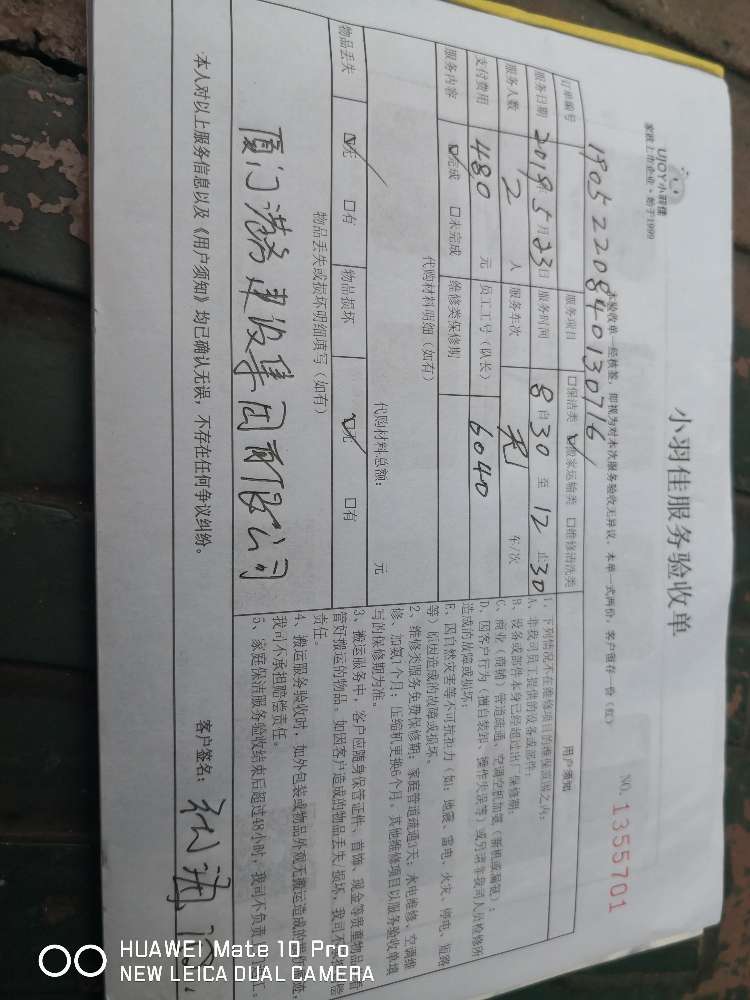 UJOY小羽佳
家政上市企业·始于1999
小羽佳服务验收单
NO. 1355701
本验收单一经核签，即视为对本次服务验收无异议，本单一式两份，客户留存一份（红）
订单编号 190522084013071６
服务项目 口保洁类 ☑搬家运输类 口维修清洗类
服务日期 2019年5月23日 服务时间 8自30至12止30
服务人数 2人 服务车次 车/次
支付费用 480元 员工工号（队长） 6040
服务内容 ☑完成 口未完成 维修类保修期
代购材料明细（如有）
代购材料总额： 元
物品丢失 ☑无 口有 物品损坏 ☑无 口有
物品丢失或损坏明细填写（如有）
厦门港务建设集团有限公司
用户须知
1、下列情况不在维修项目的维保范围之内：
A、非我司员工提供的设备或部件；
B、设备或部件本身已经超过出厂保修期；
C、商业（商铺）管道疏通、空调空机加氨（新机或漏氨）；
D、因客户行为（擅自装卸、操作失误等）或另请非我司人员检修所
造成的故障或损坏；
E、因自然灾害等不可抗拒力（如：地震、雷电、火灾、停电、短路
等）原因造成的故障或损坏。
2、维修类服务免费保修期：家庭管道疏通3天；水电维修、空调维
修、加氨1个月；压缩机更换6个月。其他维修项目以服务验收单填
写的保修期为准。
3、搬运服务中，客户应随身保管证件、首饰、现金等贵重物品
管好搬运的物品。如因客户造成的物品丢失、损坏，我司不
责任。
4、搬运服务验收时，如外包装或物品外观无搬运造成的
我司不承担赔偿责任。
5、家庭保洁服务验收结束后超过48小时，我司不负责
本人对以上服务信息以及《用户须知》均已确认无误，不存在任何争议纠纷。
客户签名：
HUAWEI Mate 10 Pro
NEW LEICA DUAL CAMERA